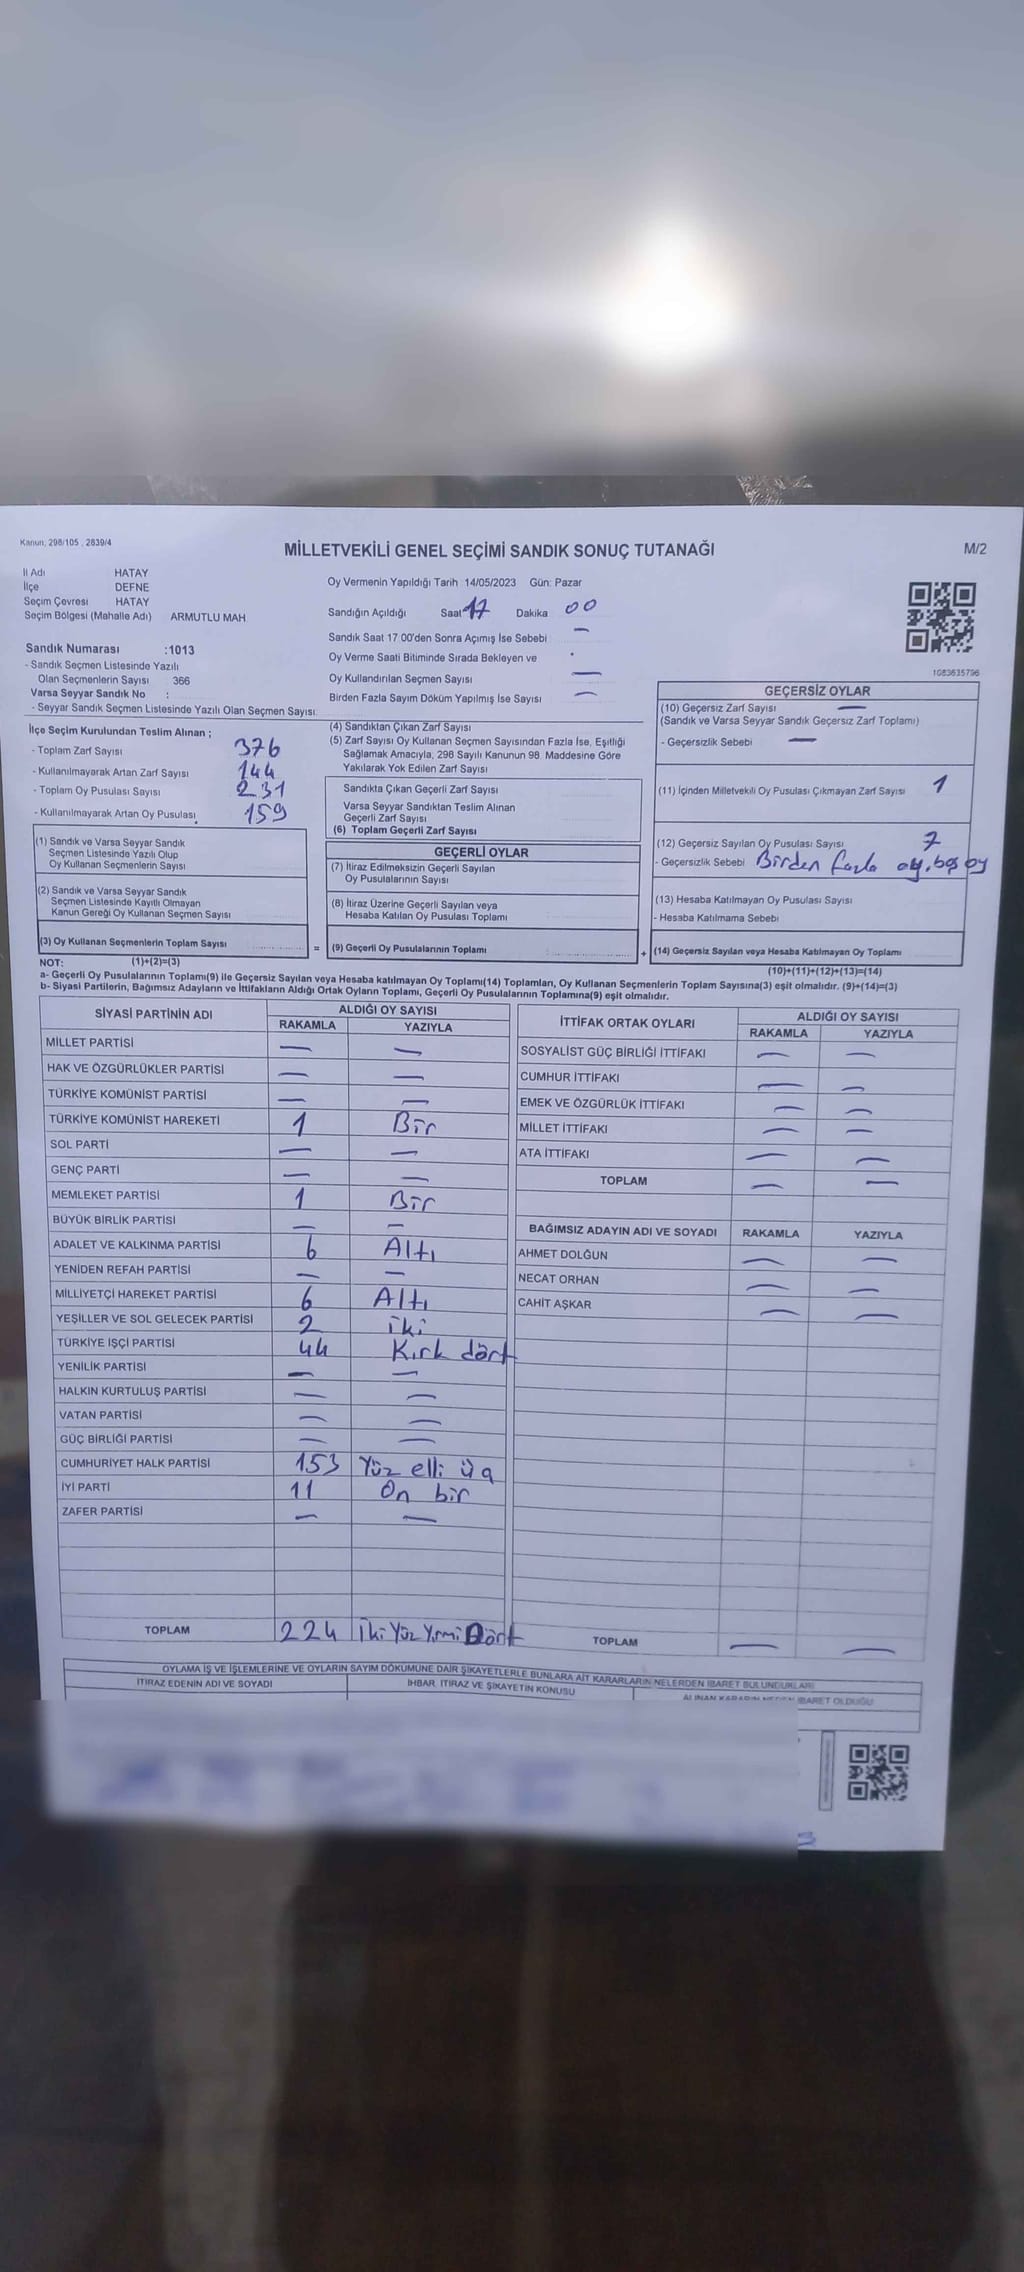 Kanun; 298/105 , 2839/4
MİLLETVEKİLİ GENEL SEÇİMİ SANDIK SONUÇ TUTANAĞI
M/2
İl Adı HATAY
İlçe DEFNE
Seçim Çevresi HATAY
Seçim Bölgesi (Mahalle Adı) ARMUTLU MAH
Oy Vermenin Yapıldığı Tarih 14/05/2023 Gün: Pazar
Sandığın Açıldığı Saat 17 Dakika 00
Sandık Saat 17.00'den Sonra Açımış İse Sebebi —
Oy Verme Saati Bitiminde Sırada Bekleyen ve
Oy Kullandırılan Seçmen Sayısı —
Birden Fazla Sayım Döküm Yapılmış İse Sayısı —
1083635796
Sandık Numarası :1013
- Sandık Seçmen Listesinde Yazılı
Olan Seçmenlerin Sayısı 366
Varsa Seyyar Sandık No :
- Seyyar Sandık Seçmen Listesinde Yazılı Olan Seçmen Sayısı:
İlçe Seçim Kurulundan Teslim Alınan ;
- Toplam Zarf Sayısı 376
- Kullanılmayarak Artan Zarf Sayısı 144
- Toplam Oy Pusulası Sayısı 231
- Kullanılmayarak Artan Oy Pusulası 159
(1) Sandık ve Varsa Seyyar Sandık
Seçmen Listesinde Yazılı Olup
Oy Kullanan Seçmenlerin Sayısı
(2) Sandık ve Varsa Seyyar Sandık
Seçmen Listesinde Kayıtlı Olmayan
Kanun Gereği Oy Kullanan Seçmen Sayısı
(3) Oy Kullanan Seçmenlerin Toplam Sayısı =
(4) Sandıktan Çıkan Zarf Sayısı
(5) Zarf Sayısı Oy Kullanan Seçmen Sayısından Fazla İse, Eşitliği
Sağlamak Amacıyla, 298 Sayılı Kanunun 98. Maddesine Göre
Yakılarak Yok Edilen Zarf Sayısı
Sandıkta Çıkan Geçerli Zarf Sayısı
Varsa Seyyar Sandıktan Teslim Alınan
Geçerli Zarf Sayısı
(6) Toplam Geçerli Zarf Sayısı
GEÇERLİ OYLAR
(7) İtiraz Edilmeksizin Geçerli Sayılan
Oy Pusulalarının Sayısı
(8) İtiraz Üzerine Geçerli Sayılan veya
Hesaba Katılan Oy Pusulası Toplamı
(9) Geçerli Oy Pusulalarının Toplamı +
GEÇERSİZ OYLAR
(10) Geçersiz Zarf Sayısı —
(Sandık ve Varsa Seyyar Sandık Geçersiz Zarf Toplamı)
- Geçersizlik Sebebi —
(11) İçinden Milletvekili Oy Pusulası Çıkmayan Zarf Sayısı 1
(12) Geçersiz Sayılan Oy Pusulası Sayısı 7
- Geçersizlik Sebebi Birden fazla oy, boş oy
(13) Hesaba Katılmayan Oy Pusulası Sayısı
- Hesaba Katılmama Sebebi
(14) Geçersiz Sayılan veya Hesaba Katılmayan Oy Toplamı
NOT: (1)+(2)=(3)
(10)+(11)+(12)+(13)=(14)
a- Geçerli Oy Pusulalarının Toplamı(9) ile Geçersiz Sayılan veya Hesaba katılmayan Oy Toplamı(14) Toplamları, Oy Kullanan Seçmenlerin Toplam Sayısına(3) eşit olmalıdır. (9)+(14)=(3)
b- Siyasi Partilerin, Bağımsız Adayların ve İttifakların Aldığı Ortak Oyların Toplamı, Geçerli Oy Pusulalarının Toplamına(9) eşit olmalıdır.
SİYASİ PARTİNİN ADI ALDIĞI OY SAYISI
RAKAMLA YAZIYLA
MİLLET PARTİSİ — —
HAK VE ÖZGÜRLÜKLER PARTİSİ — —
TÜRKİYE KOMÜNİST PARTİSİ — —
TÜRKİYE KOMÜNİST HAREKETİ 1 Bir
SOL PARTİ — —
GENÇ PARTİ — —
MEMLEKET PARTİSİ 1 Bir
BÜYÜK BİRLİK PARTİSİ — —
ADALET VE KALKINMA PARTİSİ 6 Altı
YENİDEN REFAH PARTİSİ — —
MİLLİYETÇİ HAREKET PARTİSİ 6 Altı
YEŞİLLER VE SOL GELECEK PARTİSİ 2 iki
TÜRKİYE İŞÇİ PARTİSİ 44 Kırk dört
YENİLİK PARTİSİ — —
HALKIN KURTULUŞ PARTİSİ — —
VATAN PARTİSİ — —
GÜÇ BİRLİĞİ PARTİSİ — —
CUMHURİYET HALK PARTİSİ 153 Yüz elli üç
İYİ PARTİ 11 On bir
ZAFER PARTİSİ — —
TOPLAM 224 İki Yüz Yirmi Dört
İTTİFAK ORTAK OYLARI ALDIĞI OY SAYISI
RAKAMLA YAZIYLA
SOSYALİST GÜÇ BİRLİĞİ İTTİFAKI — —
CUMHUR İTTİFAKI — —
EMEK VE ÖZGÜRLÜK İTTİFAKI — —
MİLLET İTTİFAKI — —
ATA İTTİFAKI — —
TOPLAM — —
BAĞIMSIZ ADAYIN ADI VE SOYADI RAKAMLA YAZIYLA
AHMET DOLĞUN — —
NECAT ORHAN — —
CAHİT AŞKAR — —
TOPLAM — —
OYLAMA İŞ VE İŞLEMLERİNE VE OYLARIN SAYIM DÖKÜMÜNE DAİR ŞİKAYETLERLE BUNLARA AİT KARARLARIN NELERDEN İBARET BULUNDUKLARI
İTİRAZ EDENİN ADI VE SOYADI İHBAR, İTİRAZ VE ŞİKAYETİN KONUSU ALINAN KARARIN NEDEN İBARET OLDUĞU